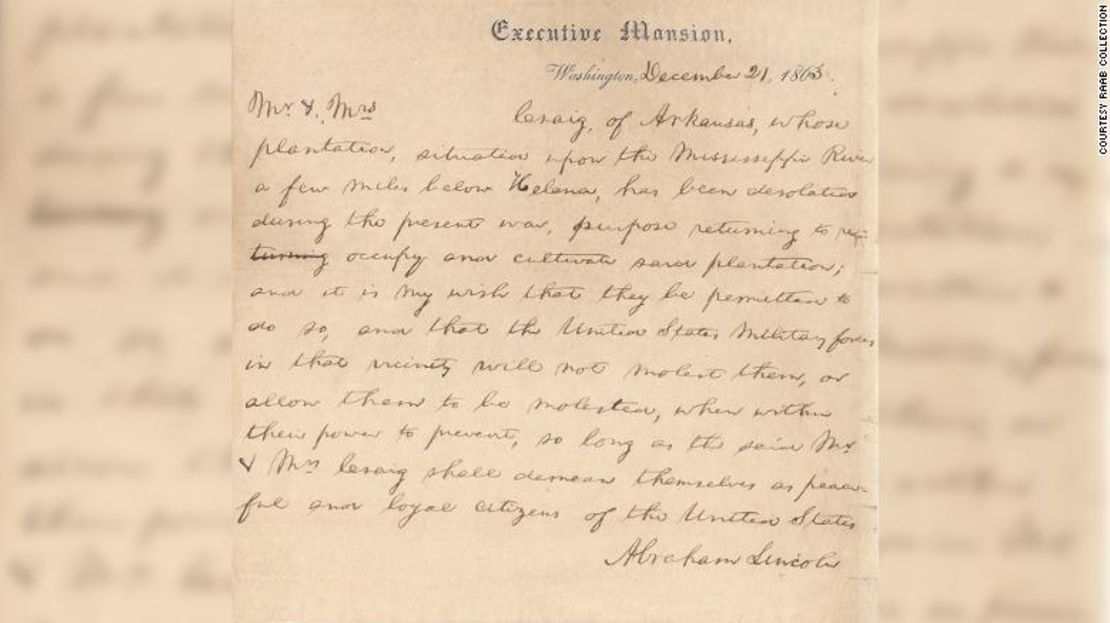 Executive Mansion,
Washington, December 21, 1863.
Mr. & Mrs Craig, of Arkansas, whose
plantation, situation upon the Mississippi River
a few miles below Helena, has been desolated
during the present war, purpose returning to re=
turning occupy and cultivate said plantation;
and it is my wish that they be permitted to
do so, and that the United States Military forces
in that vicinity will not molest them, or
allow them to be molested, when within
their power to prevent, so long as the said Mr.
& Mrs Craig shall demean themselves as peace-
ful and loyal citizens of the United States
Abraham Lincoln
COURTESY RAAB COLLECTION